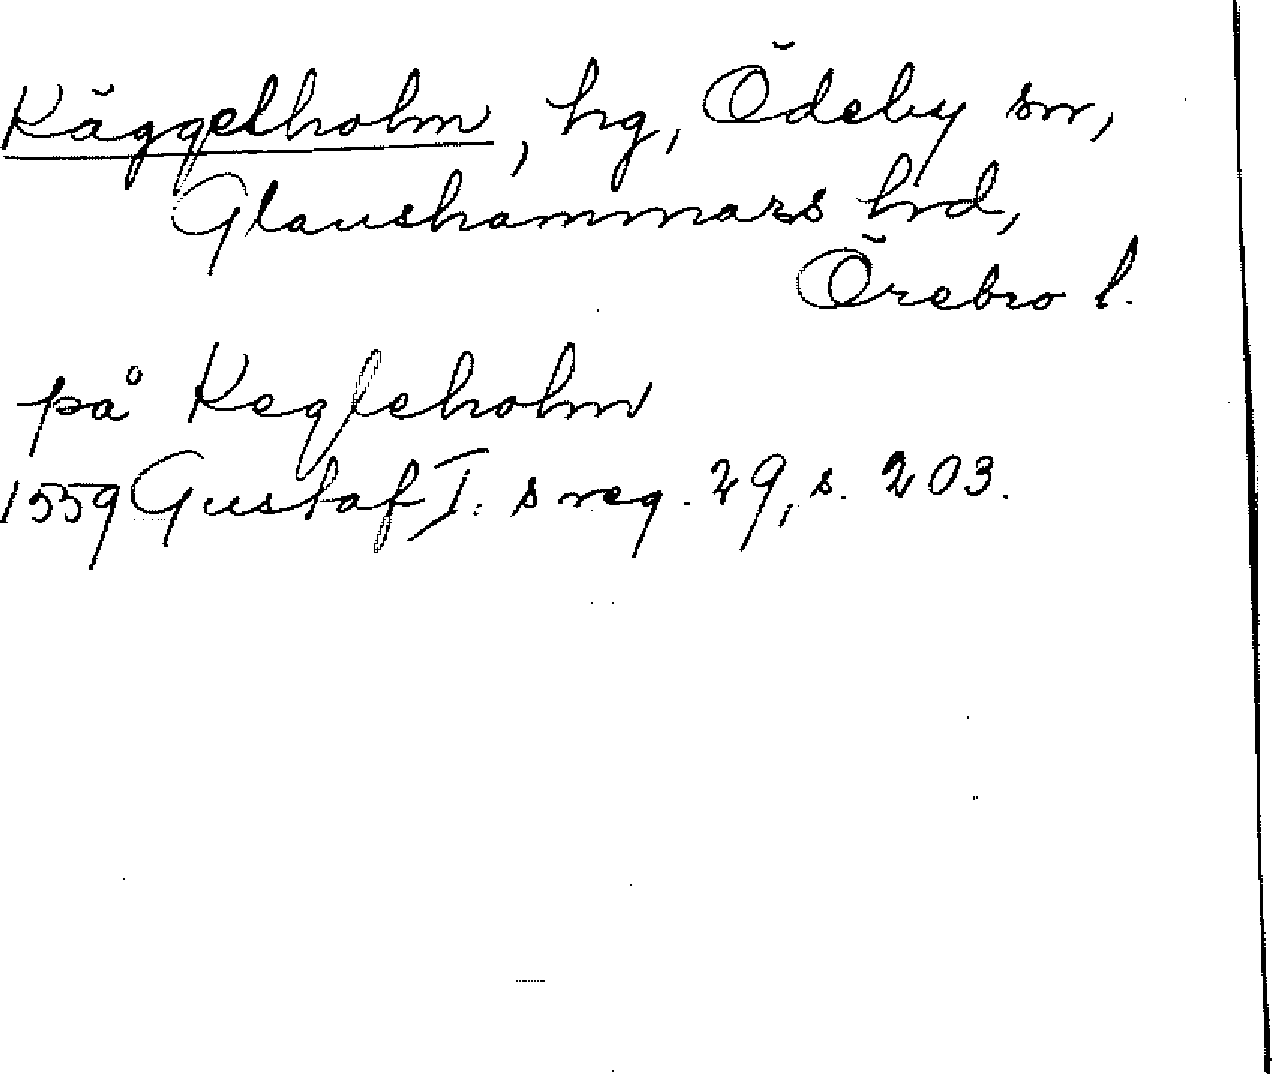 Käggelholm, hg, Ödeby sn,
Glanshammars hrd,
Örebro l.
på Kegleholm
1559 Gustaf I:s reg. 29, s. 203.